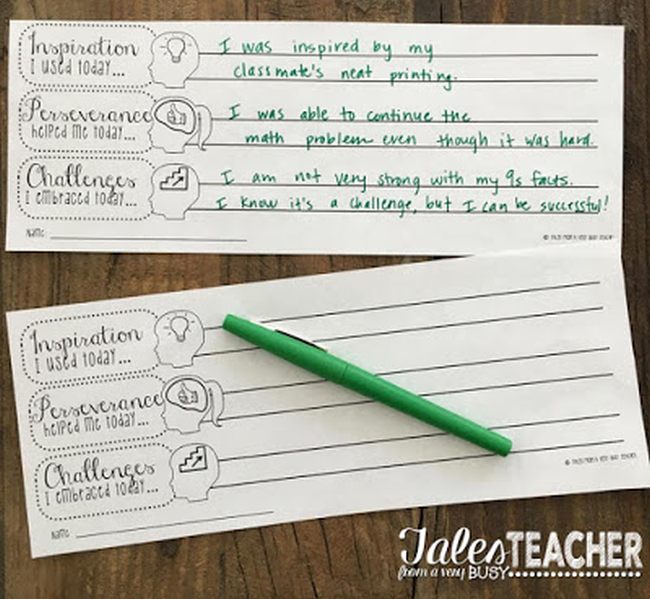 Inspiration
I used today...
I was inspired by my
classmate's neat printing.
Perseverance
helped me today...
I was able to continue the
math problem even though it was hard.
Challenges
I embraced today...
I am not very strong with my 9s facts.
I know it's a challenge, but I can be successful!
Name:
© TALES FROM A VERY BUSY TEACHER
Inspiration
I used today...
Perseverance
helped me today...
Challenges
I embraced today...
Name:
© TALES FROM A VERY BUSY TEACHER
Tales TEACHER
from a very BUSY